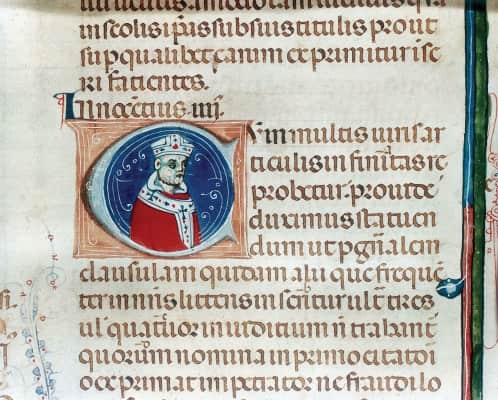 titulis prout
sup qualibet earum exprimitur i se
ri facientes.
Innocẽtius. iiij.
C um in multis iuris ar
ticulis in finitas re
probetur. prouide
duximus statuen
dum ut p gñalem
clausulam quidam alij que frequẽ
ter in nr̃is litteris in scribitur ult᷑ tres
uĺ quatuor in iuditium ñ trahant᷑
quorum nomina in primo citatoi
o exprimat impetrator ne fraudi lo